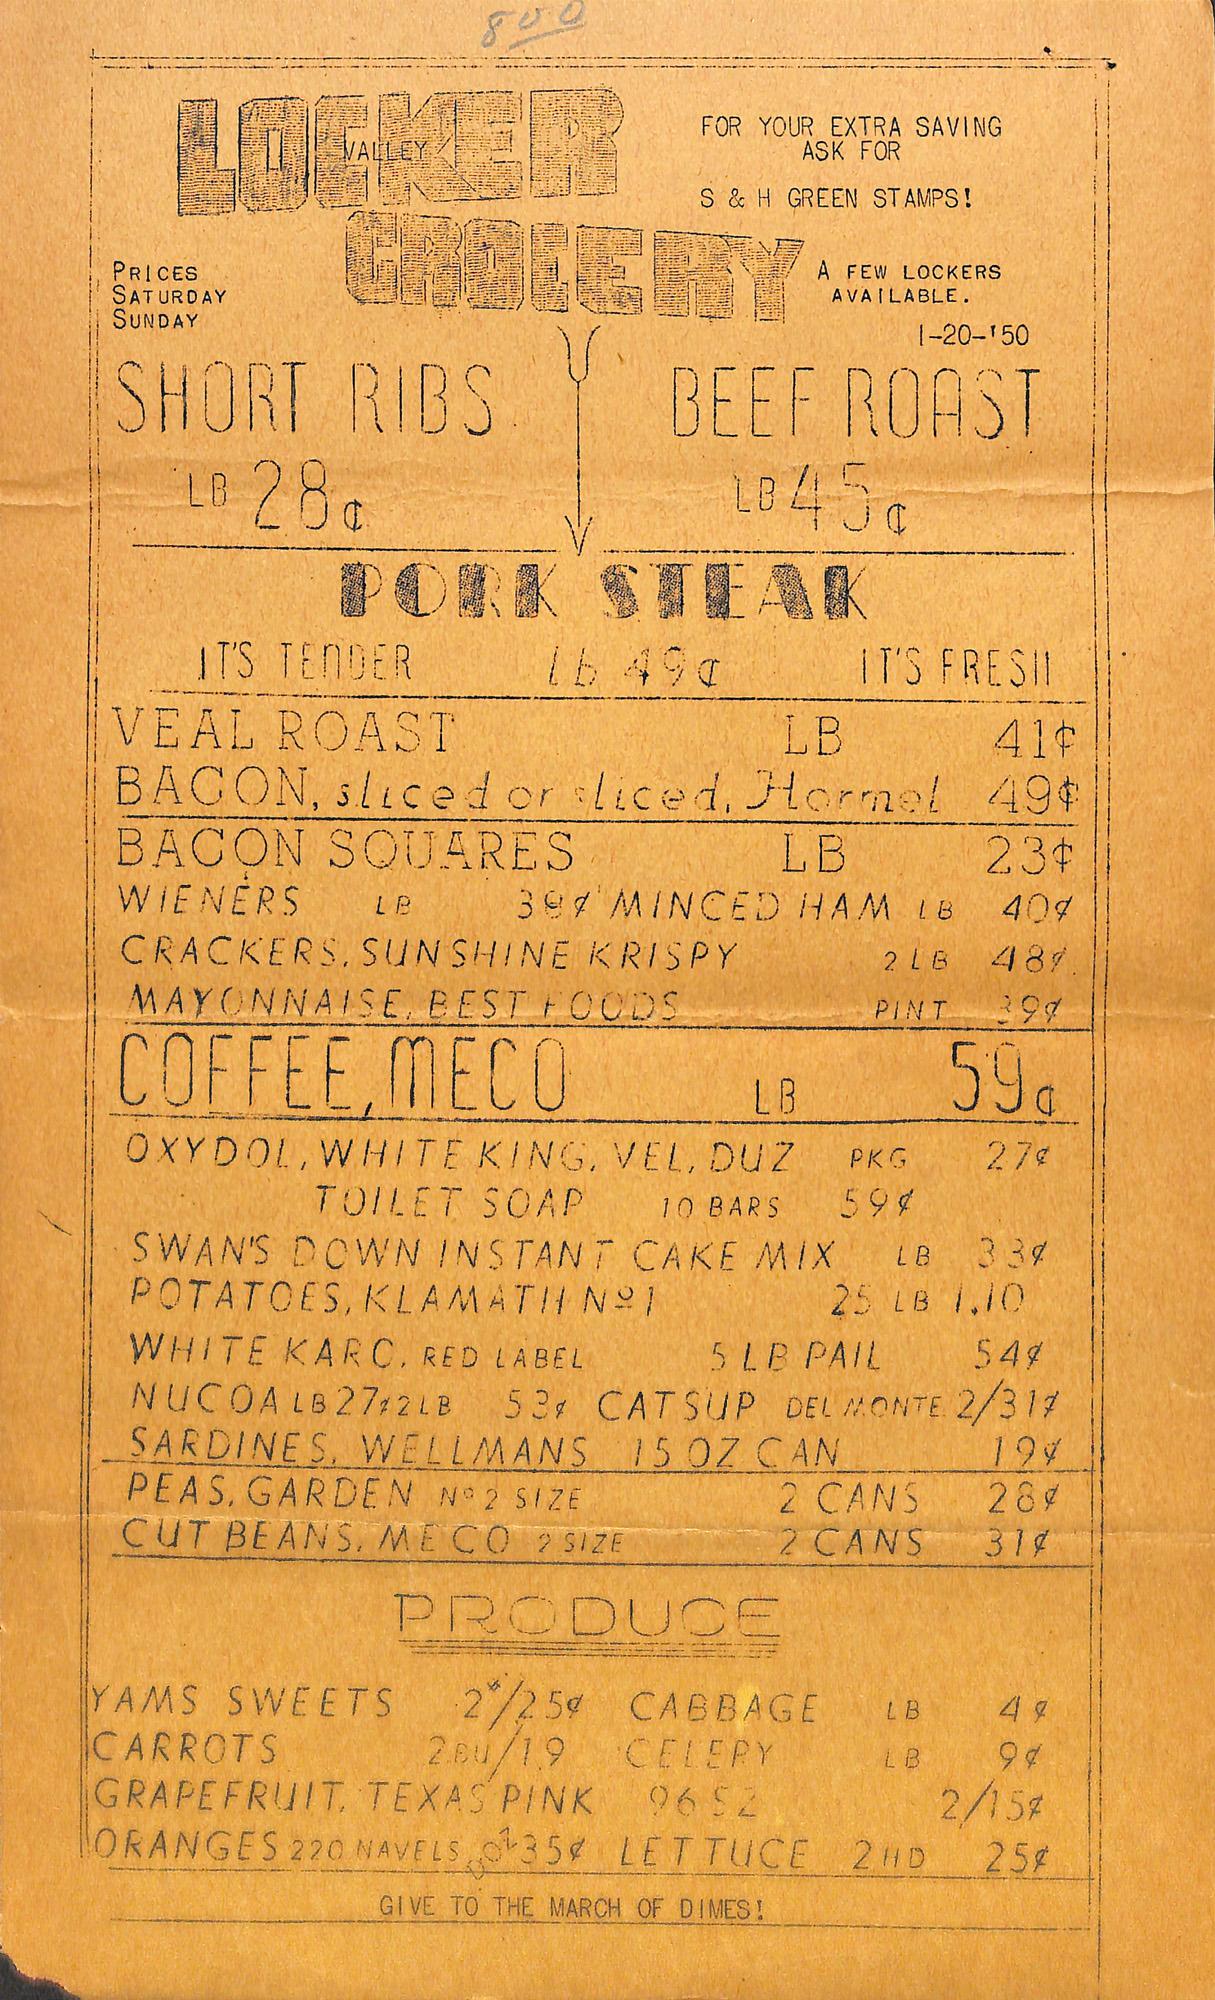 800
LOCKER
VALLEY
GROCERY
FOR YOUR EXTRA SAVING
ASK FOR
S & H GREEN STAMPS!
PRICES
SATURDAY
SUNDAY
A FEW LOCKERS
AVAILABLE.
1-20-'50
SHORT RIBS
LB 28¢
BEEF ROAST
LB 45¢
PORK STEAK
IT'S TENDER lb 49¢ IT'S FRESH
VEAL ROAST LB 41¢
BACON, sliced or sliced, Hormel 49¢
BACON SQUARES LB 23¢
WIENERS LB 39¢ MINCED HAM LB 40¢
CRACKERS, SUNSHINE KRISPY 2 LB 48¢
MAYONNAISE, BEST FOODS PINT 39¢
COFFEE, MECO LB 59¢
OXYDOL, WHITE KING, VEL, DUZ PKG 27¢
TOILET SOAP 10 BARS 59¢
SWAN'S DOWN INSTANT CAKE MIX LB 33¢
POTATOES, KLAMATH Nº 1 25 LB 1.10
WHITE KARO, RED LABEL 5 LB PAIL 54¢
NUCOA LB 27¢ 2 LB 53¢ CATSUP DEL MONTE 2/31¢
SARDINES, WELLMANS 15 OZ CAN 19¢
PEAS, GARDEN Nº 2 SIZE 2 CANS 28¢
CUT BEANS, MECO 2 SIZE 2 CANS 31¢
PRODUCE
YAMS SWEETS 2#/25¢ CABBAGE LB 4¢
CARROTS 2 BU/19 CELERY LB 9¢
GRAPEFRUIT, TEXAS PINK 96 SZ 2/15¢
ORANGES 220 NAVELS DOZ 35¢ LETTUCE 2 HD 25¢
GIVE TO THE MARCH OF DIMES!